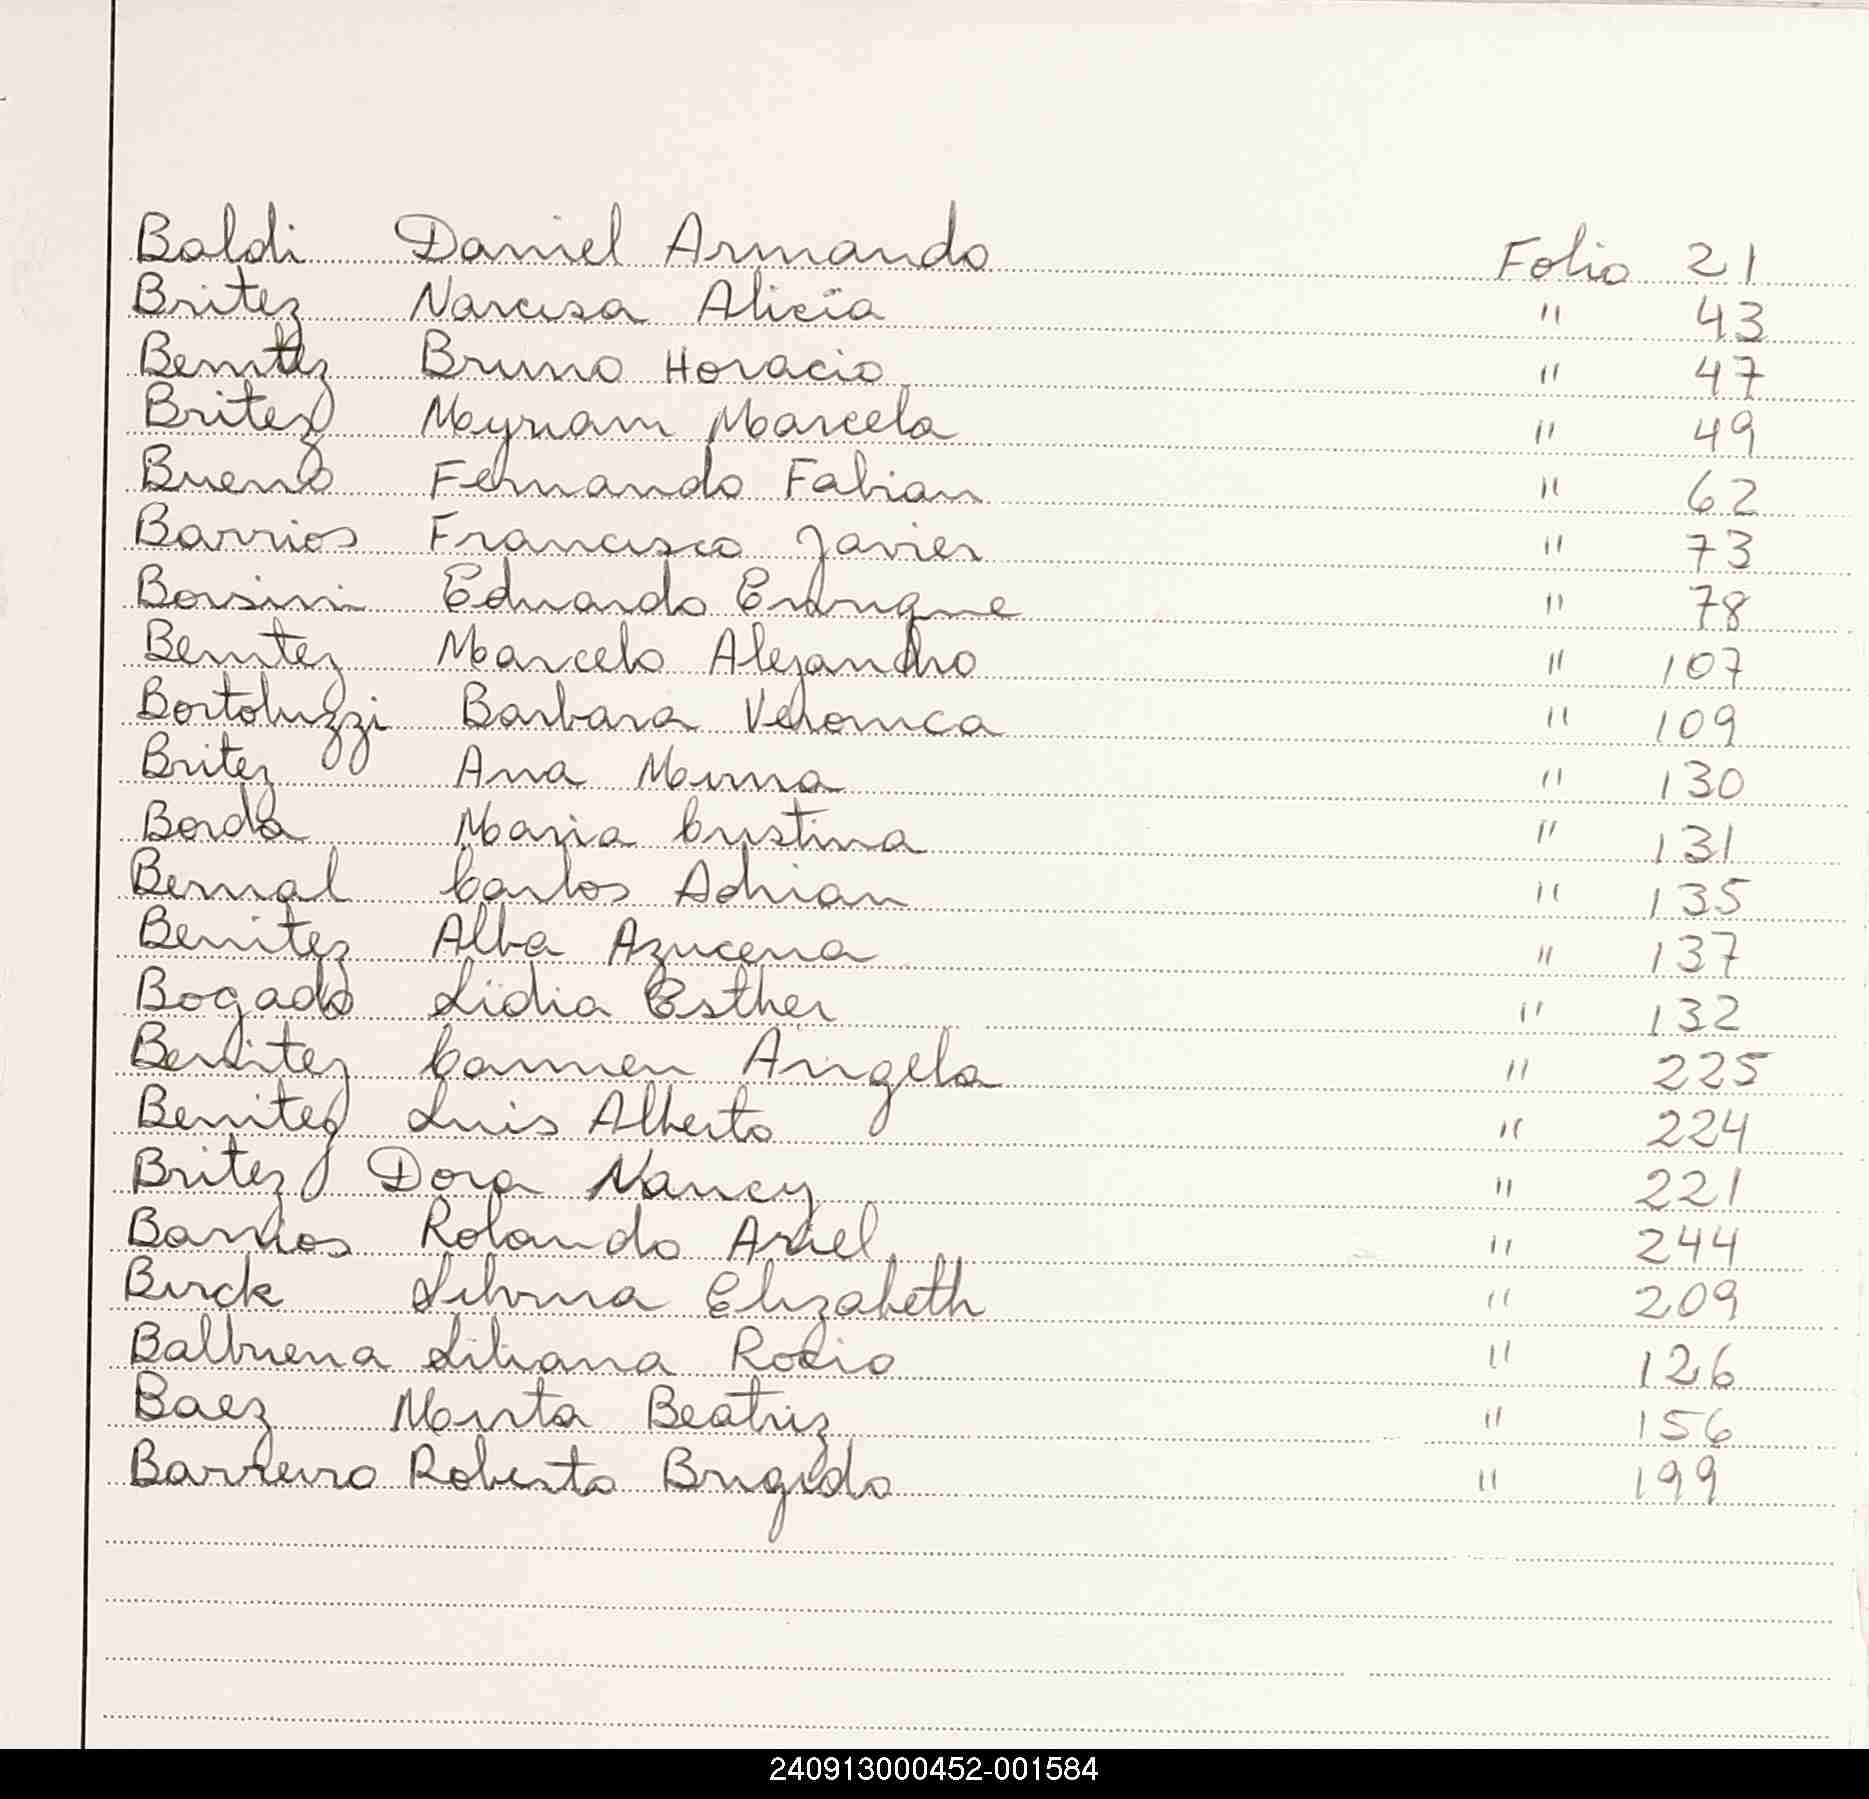 Baldi Daniel Armando Folio 21
Britez Narcisa Alicia " 43
Benitez Bruno Horacio " 47
Britez Myriam Marcela " 49
Bueno Fernando Fabian " 62
Barrios Francisco Javier " 73
Borsini Eduardo Enrique " 78
Benitez Marcelo Alejandro " 107
Bortoluzzi Barbara Veronica " 109
Britez Ana Mirna " 130
Borda Maria Cristina " 131
Bernal Carlos Adrian " 135
Benitez Alba Azucena " 137
Bogado Lidia Esther " 132
Benitez Carmen Angela " 225
Benitez Luis Alberto " 224
Britez Dora Nancy " 221
Barrios Rolando Ariel " 244
Birck Silvina Elizabeth " 209
Balbuena Liliana Rocio " 126
Baez Mirta Beatriz " 156
Barreiro Roberto Brigido " 199
240913000452-001584